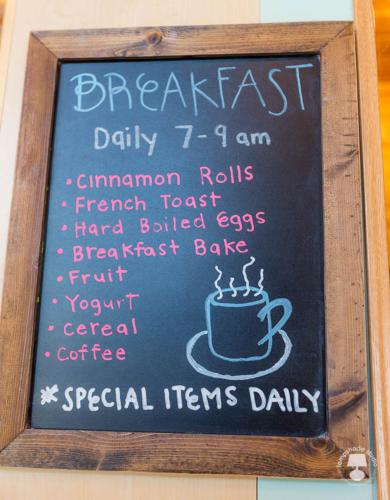 BREAKFAST
Daily 7-9 am
• Cinnamon Rolls
• French Toast
• Hard Boiled Eggs
• Breakfast Bake
• Fruit
• Yogurt
• Cereal
• Coffee
* SPECIAL ITEMS DAILY